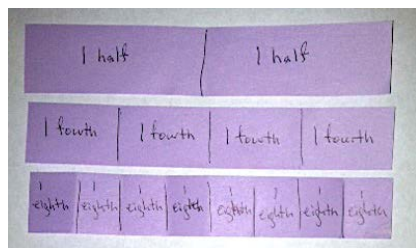 1 half 1 half
1 fourth 1 fourth 1 fourth 1 fourth
1 1 1 1 1 1 1 1
eighth eighth eighth eighth eighth eighth eighth eighth